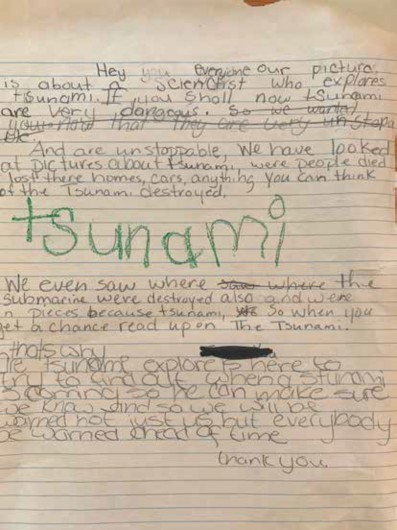 Hey you everyone our picture
is about a scientist who explores
tsunami. If you shall now tsunami
are very dangeous. So we wanted
you now that they are very unstopa
And are unstoppable, We have looked
at pictures about tsunami, were people died
lost there homes, cars, anything you can think
of the Tsunami destroyed.
tsunami
We even saw where saw where the
submarine were destroyed also and were
n pieces because tsunami, So when you
get a chance read up on The Tsunami.
thats why
tsuname explore is here to
try to find out when a stunami
is coming so he can make sure
we know and so we will be
warned not just us but everybody
be warned ahead of time
thank you.